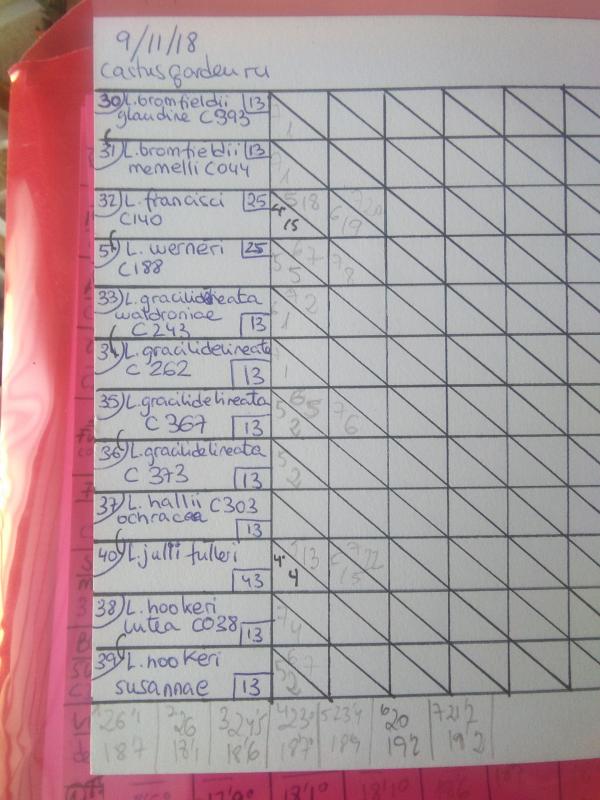 9/11/18
castusgarden.ru
30) L. bromfieldii 13
glaudine C393
1
31) L. bromfieldii 13
memelli C044
1
32) L. francisci 25
C140
4 5 18
15
6 7 20
19
5) L. werneri 25
C188
5 6 7
5
7
8
33) L. gracilidelineata
waldroniae
C243 13
7 2
1
34) L. gracilidelineata
C 262 13
1
35) L. gracilidelineata
C 367 13
5 6 5
2
7
6
36) L. gracilidelineata
C 373 13
5
2
37) L. hallii C303
ochracea
13
40) L. julii fulleri
43
4 13
4
7 22
15
38) L. hookeri
lutea C038 13
7
4
39) L. hookeri
susannae 13
5 6 7
2
1 26'1 2 26 3 24'5 4 23° 5 23'4 6 20 7 21'2
18'7 18'1 18'6 18'7 18'4 19'2 19'2